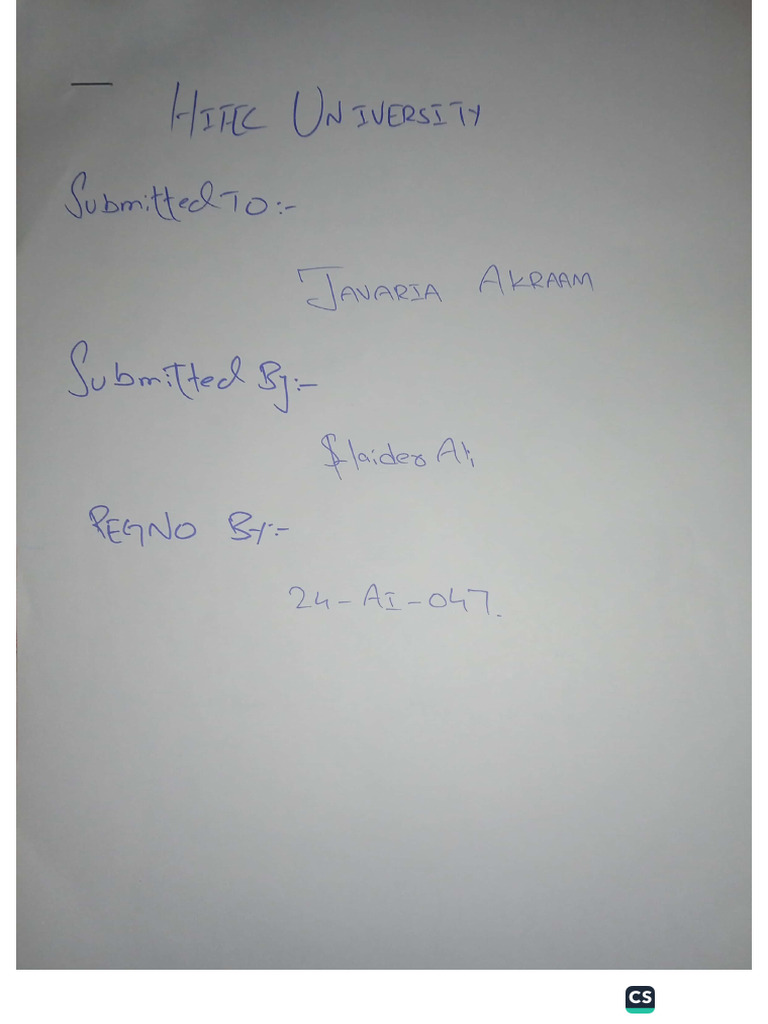 HITEC UNIVERSITY
Submitted TO:-
JAVARIA AKRAAM
Submitted By:-
Haider Ali
REGNO By:-
24-AI-047.
CS